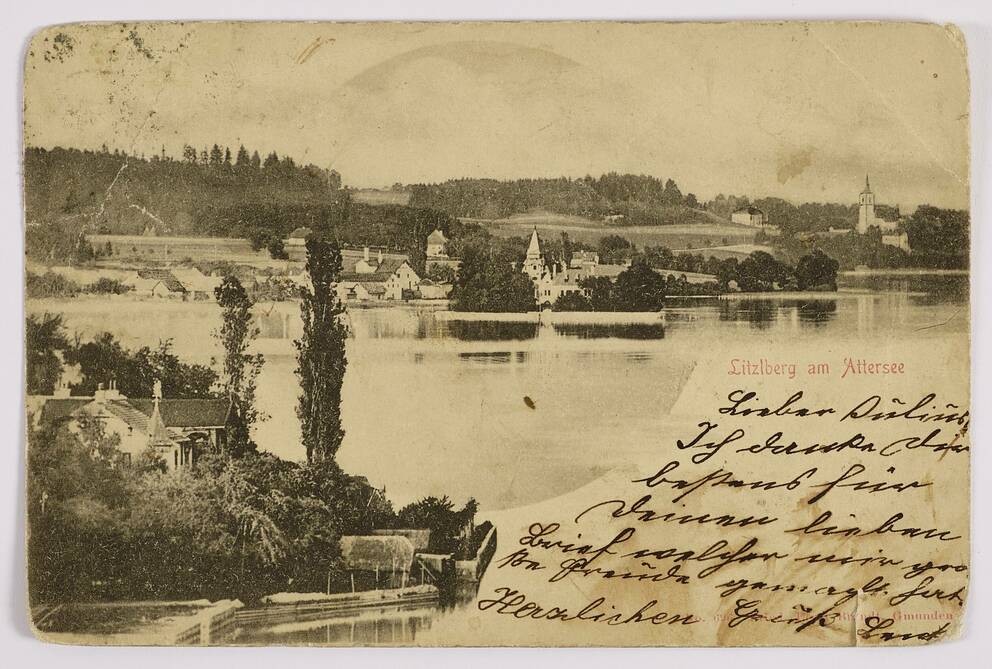 Litzlberg am Attersee
Lieber Julius
Ich danke Dir
bestens für
Deinen lieben
Brief welcher mir gro
ße Freude gemacht hat.
Herzlichen Gruß
Gmunden